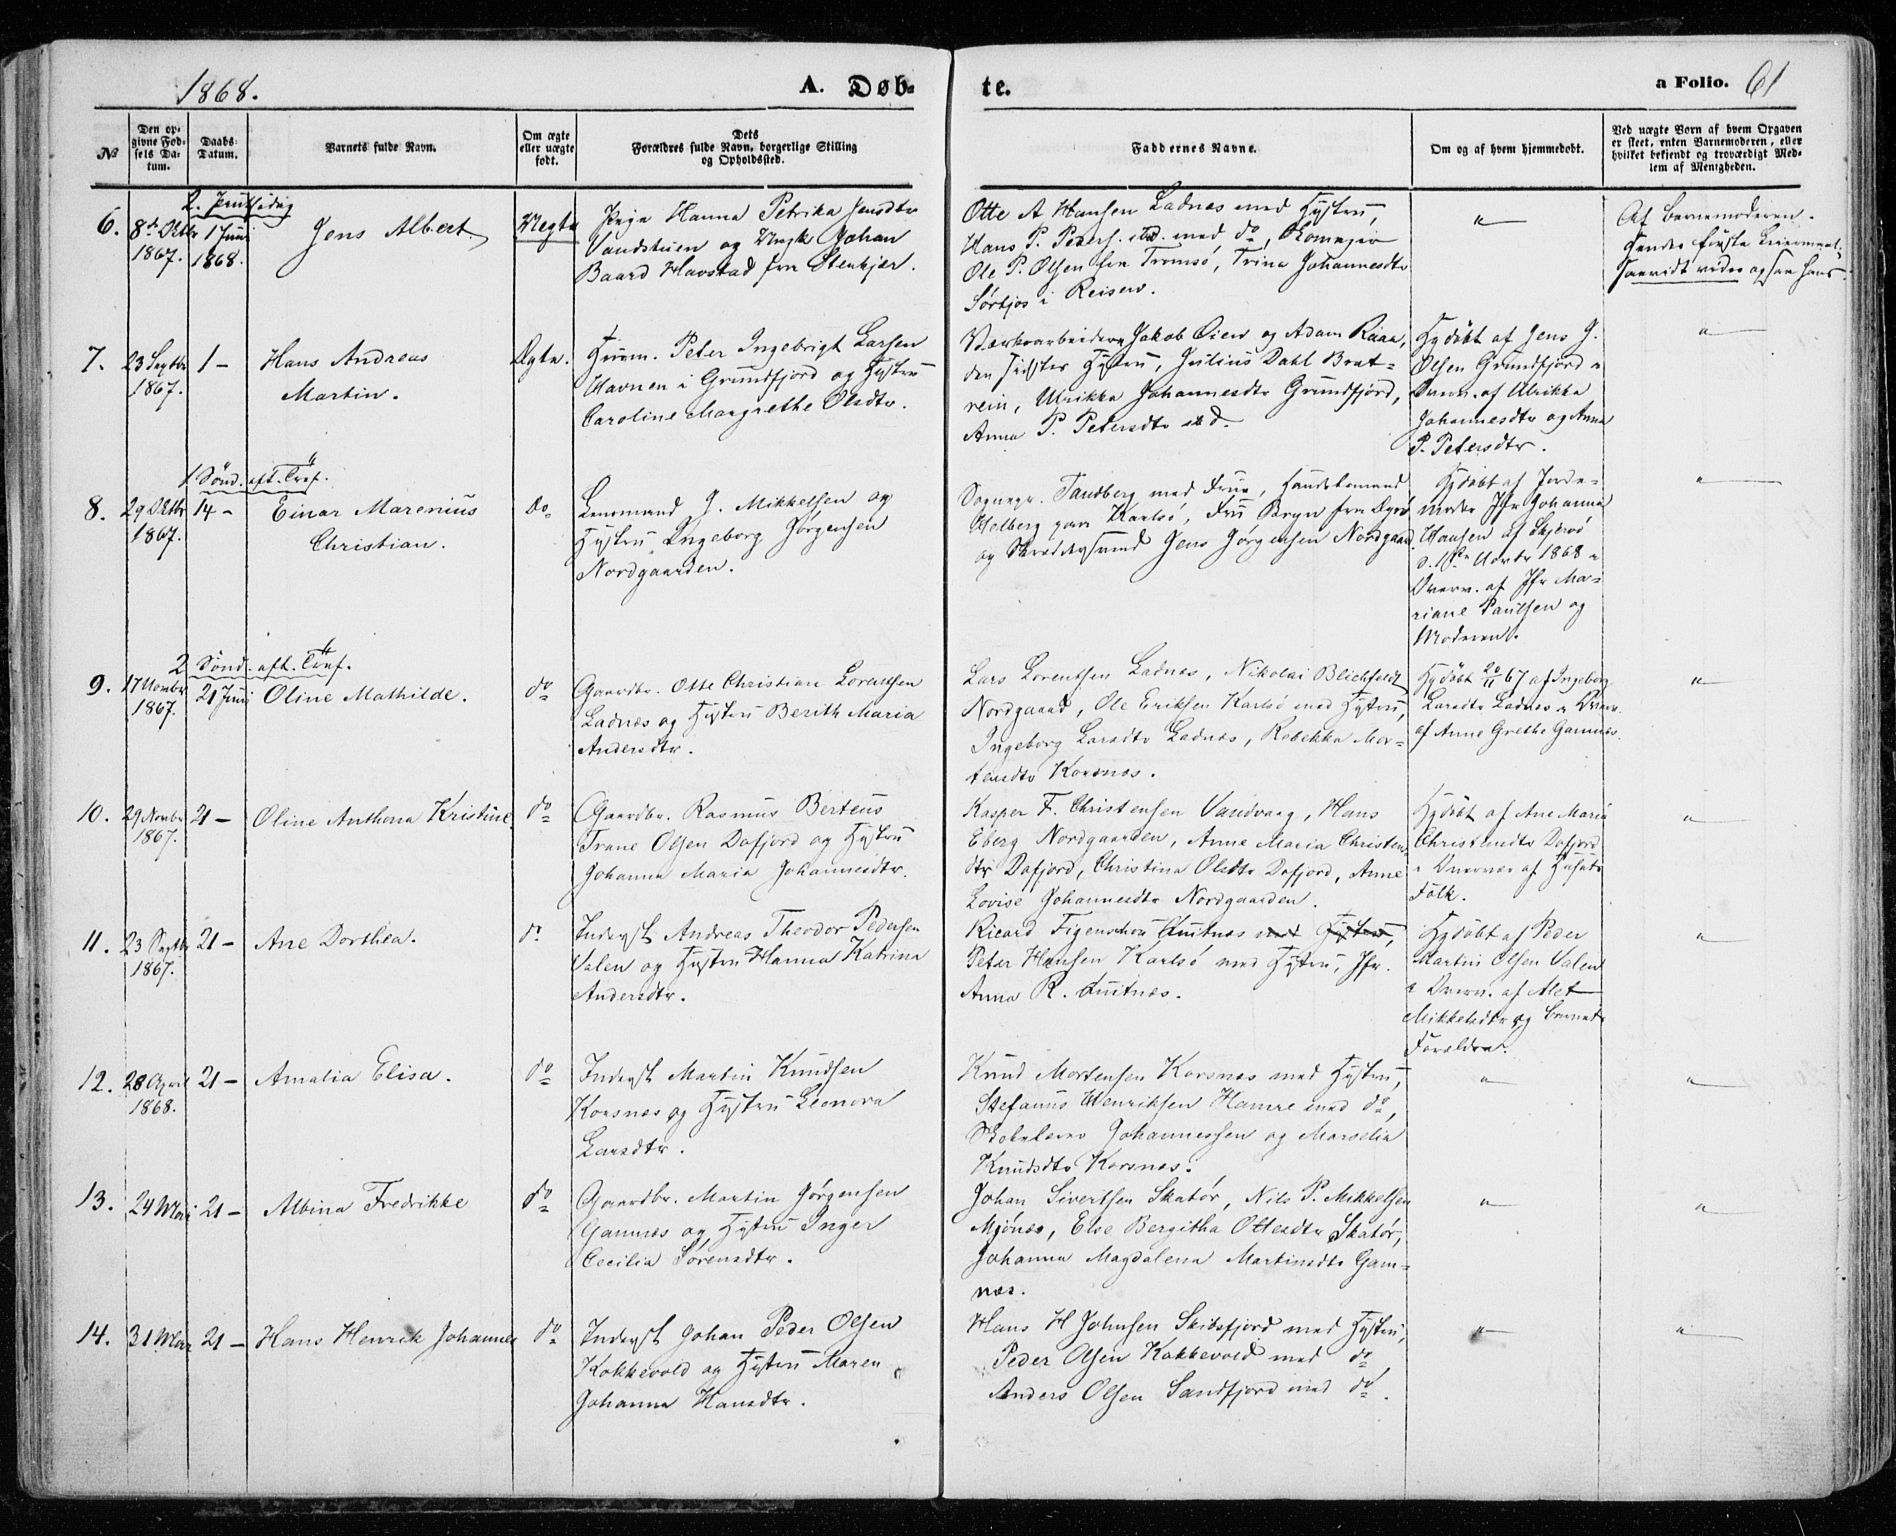 1868.
A. Døb-
te.
a Folio. 61
No
Den op-
givne Fød-
sels Da-
tum.
Daabs-
Datum.
Barnets fulde Navn.
Om ægte
eller uægte
født.
Dets
Forældres fulde Navn, borgerlige Stilling
og Opholdssted.
Faddernes Navne.
Om og af hvem hjemmedøbt.
Ved uægte Børn af hvem Opgaven
er skeet, enten Barnemoderen, eller
hvilket bekjendt og troværdigt Med-
lem af Menigheden.
2. Pintsedag
6.
8de Oktbr
1867.
1 Juni
1868.
Jens Albert.
Uegte
Pige Hanna Petrika Jensdtr
Vandstuen og Ungk Johan
Baard Havstad fra Stenkjer.
Otte A Hansen Ladnæs med Hustru,
Hans P. Peders. std. med do,
Ole P. Olsen fra Tromsø, Trina Johannesdtr
Sørkjos i Reisen.
"
Af Barnemoderen.
Hendes første Leiermaal,
saavidt vides ogsaa hans.
7.
23 Septbr
1867.
1 -
Hans Andreas
Martin.
Ægte.
Huusm. Peter Ingebrigt Larsen
Havnen i Grundfjord og Hustru
Caroline Margrethe Olsdtr.
Værksarbeiderne Jakob Øien og Adam Raaa,
den sidstes Hustru, Julius Dahl Brat-
rein, Ulrikka Johannesdtr Grundfjord,
Anna P. Petersdtr std.
Hjdøbt af Jens J.
Olsen Grundfjord i
Overv. af Ulrikka
Johannesdtr og Anna
P. Petersdtr.
"
1 Sønd. eft. Tref.
8.
29 Oktbr
1867.
14 -
Einar Marenius
Christian.
Do
Lensmand J. Mikkelsen og
Hustru Ingeborg Jørgensen
Nordgaarden.
Sognepr. Tandberg med Frue, Handelsmand
Holberg paa Karlsø, Fru Bryn fra
og Skræddersvend Jens Jørgensen Nordgaard.
Hjdøbt af Jorde-
moder Jfr Johanna
Hansen af Skjervø
d. 1ste Novbr 1868 i
Overv. af Jfr Ma-
riane Paulsen og
Moderen.
"
2 Sønd. eft. Tref.
9.
17 Novmbr
1867.
21 Juni
Oline Mathilde.
do
Gaardbr. Otte Christian Lorentsen
Ladnæs og Hustru Berith Maria
Andersdtr.
Lars Lorentsen Ladnæs, Nikolai Blichfeldt
Nordgaard, Ole Eriksen Karlsø med Hustru,
Ingeborg Larsdtr Ladnæs, Rebekka Mor-
tensdtr Korsnæs.
Hjdøbt 20/11 67 af Ingeborg
Larsdtr Ladnæs i Overv.
af Anne Grethe Gamnæs.
"
10.
29 Novmbr
1867.
21 -
Oline Anthona Kristine
do
Gaardbr. Rasmus Berteus
Trane Olsen Dafjord og Hustru
Johanna Maria Johannesdtr.
Kasper F. Christensen Vandvaag, Hans
Eberg Nordgaarden, Anne Maria Christens-
dtr Dafjord, Christina Olsdtr Dafjord, Anne
Lovise Johannesdtr Nordgaarden.
Hjdøbt af Ane Maria
Christensdtr Dafjord
i Overvær af Husets
Folk.
"
11.
23 Septbr
1867.
21 -
Ane Dorthea.
do
Inderst Andreas Theodor Pedersen
Valen og Hustru Hanna Katrina
Andersdtr.
Ricard Figenschou Quitnæs med Hustru,
Peter Hansen Karlsø med Hustru, Jfr.
Anna R. Quitnæs.
Hjdøbt af Peder
Martin Olsen Valen
i Overv. af Alet
Mikkelsdtr og Barnets
Forældre.
"
12.
28 April
1868.
21 -
Amalia Elisa.
do
Inderst Martin Knudsen
Korsnæs og Hustru Leonora
Larsdtr.
Knud Mortensen Korsnæs med Hustru,
Stefanus Henriksen Hamre med do,
Skolelærer Johannessen og Marselia
Knudsdtr Korsnæs.
"
"
13.
24 Mai
21 -
Albina Fredrikke
do
Gaardbr. Martin Jørgensen
Gamnæs og Hustru Inger
Cecilia Sørensdtr.
Johan Sivertsen Skatør, Nils P. Mikkelsen
Mjønes, Else Bergitha Ottesdtr Skatør,
Johanna Magdalena Martinsdtr Gam-
næs.
"
"
14.
31 Mai
21 -
Hans Henrik Johannes
do
Inderst Johan Peder Olsen
Kokkevold og Hustru Maren
Johanna Hansdtr.
Hans H Johnsen Skibsfjord med Hustru,
Peder Olsen Kokkevold med do,
Anders Olsen Sandfjord med do.
"
"